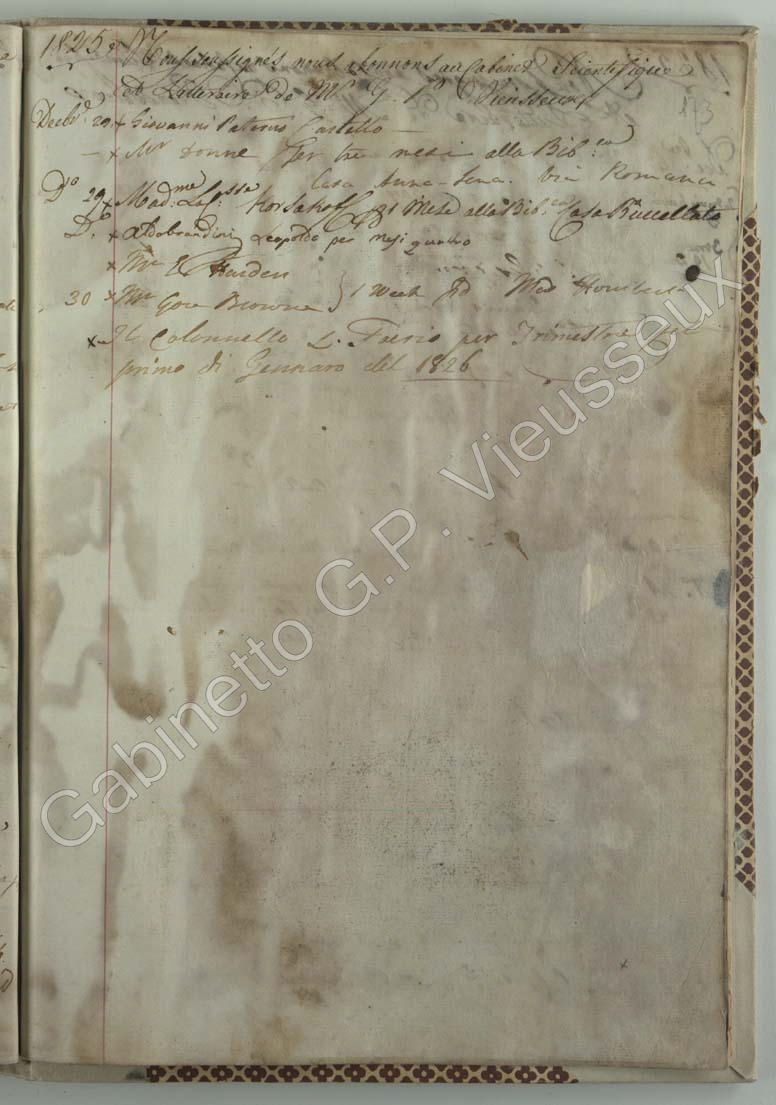 1825 Nous soussignés nous abonnons au Cabinet Scientifique
et Litteraire de Mr G. P. Vieusseux
Decbre 29 x Giovanni Paterno Castello —
— x Mr Donne per tre mesi alla Bib.ca
Casa Anna-Lena. Via Romana
Do 29 x Mad:me Korsakoff pr 1 Mese alla Bib.ca Casa Baccellato
D.o x Aldobrandini Leopoldo per mesi quattro
x Mr E Harden
30 x Mr Gore Browne } 1 Week pd Mad Hombert
x Il Colonnello L. Foerio per Trimestre
primo di Gennaro del 1826
Gabinetto G.P. Vieusseux